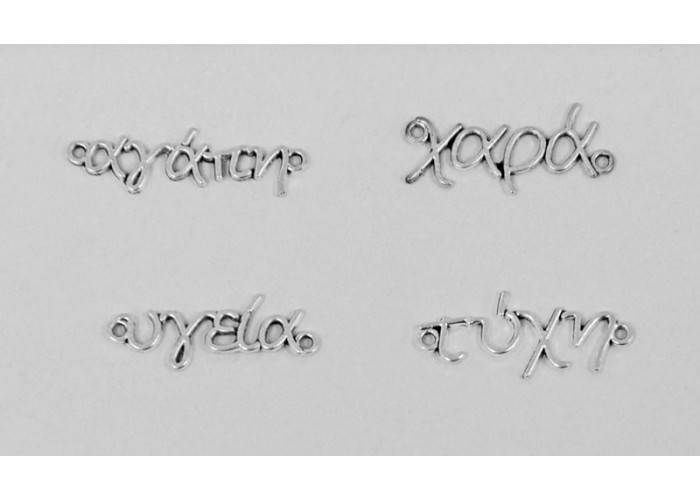 αγάπη
χαρά
υγεία
τύχη